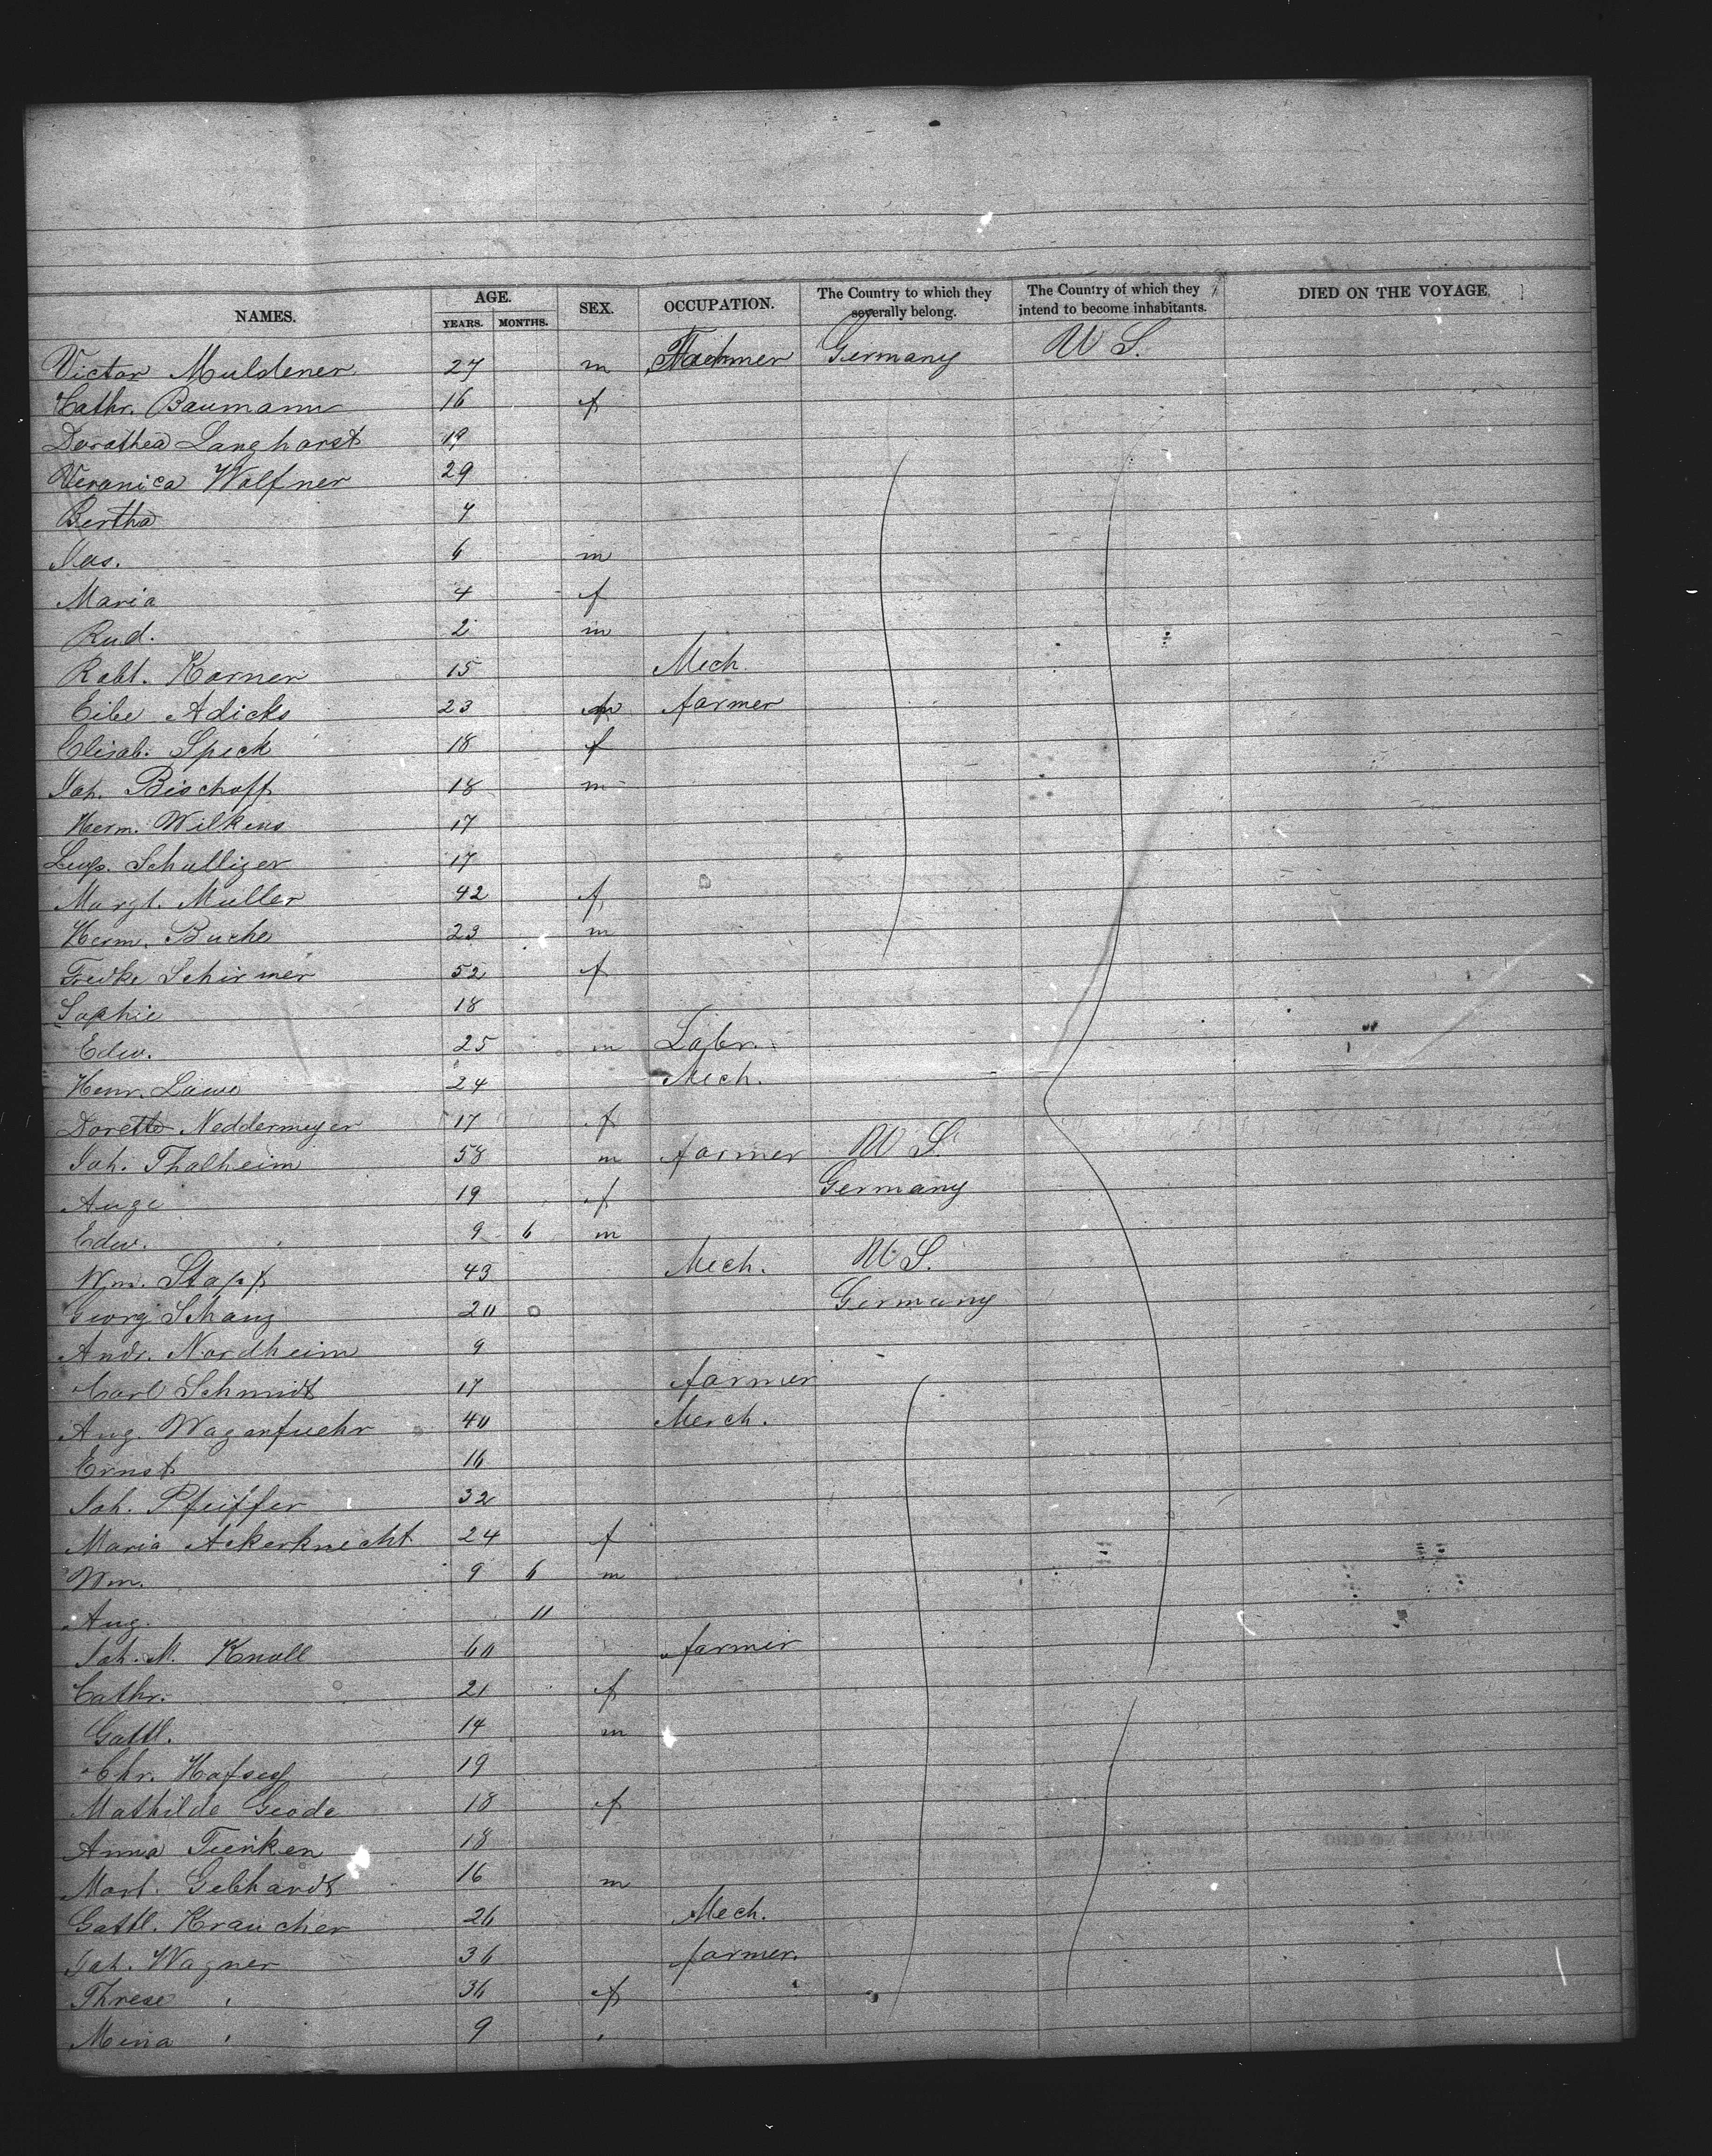 NAMES. AGE. YEARS. MONTHS. SEX. OCCUPATION. The Country to which they severally belong. The Country of which they intend to become inhabitants. DIED ON THE VOYAGE.
Victor Muldener 27 m Germany U S.
Cathr. Baumann 16 f
Dorathea Langhorst 19
Veranica Wolfner 29
Bertha 7
6 m
Maria 4 f
Rud. 2 m
Robt. Korner 15 Mech.
Eibe Adicks 23 m farmer
Elisab. Speck 18 f
Joh. Bischoff 18 m
Herm. Wilkens 17
Leop. Schullizer 17
Margt. Muller 42 f
Herm. Buche 23 m
Fredke Schirmer 52 f
Sophie 18
Edw. 25 m Labr.
Henr. Lawe 24 Mech.
Dorette Neddermeyer 17 f
Joh. Thalheim 58 m farmer U S.
Auge 19 f Germany
Edw. 9 6 m
Wm. Stapf 43 Mech. U S.
Georg Schanz 20 Germany
Andr. Nordheim 9
Carl Schmidt 17 farmer
Aug. Wagenfuehr 40 Merch.
Ernst 16
Joh. Pfeiffer 32
Maria Ackerknecht 24 f
Wm. 9 6 m
Aug. 11
Joh. M. Knoll 60 farmer
Cathr. 21 f
Gottl. 14 m
Chr. 19
Mathilde Geode 18 f
Anna Tienken 18
Mart. Gebhardt 16 m
Gottl. Kraucher 26 Mech.
Joh. Wagner 36 farmer.
Threse " 36 f
Mina " 9 "